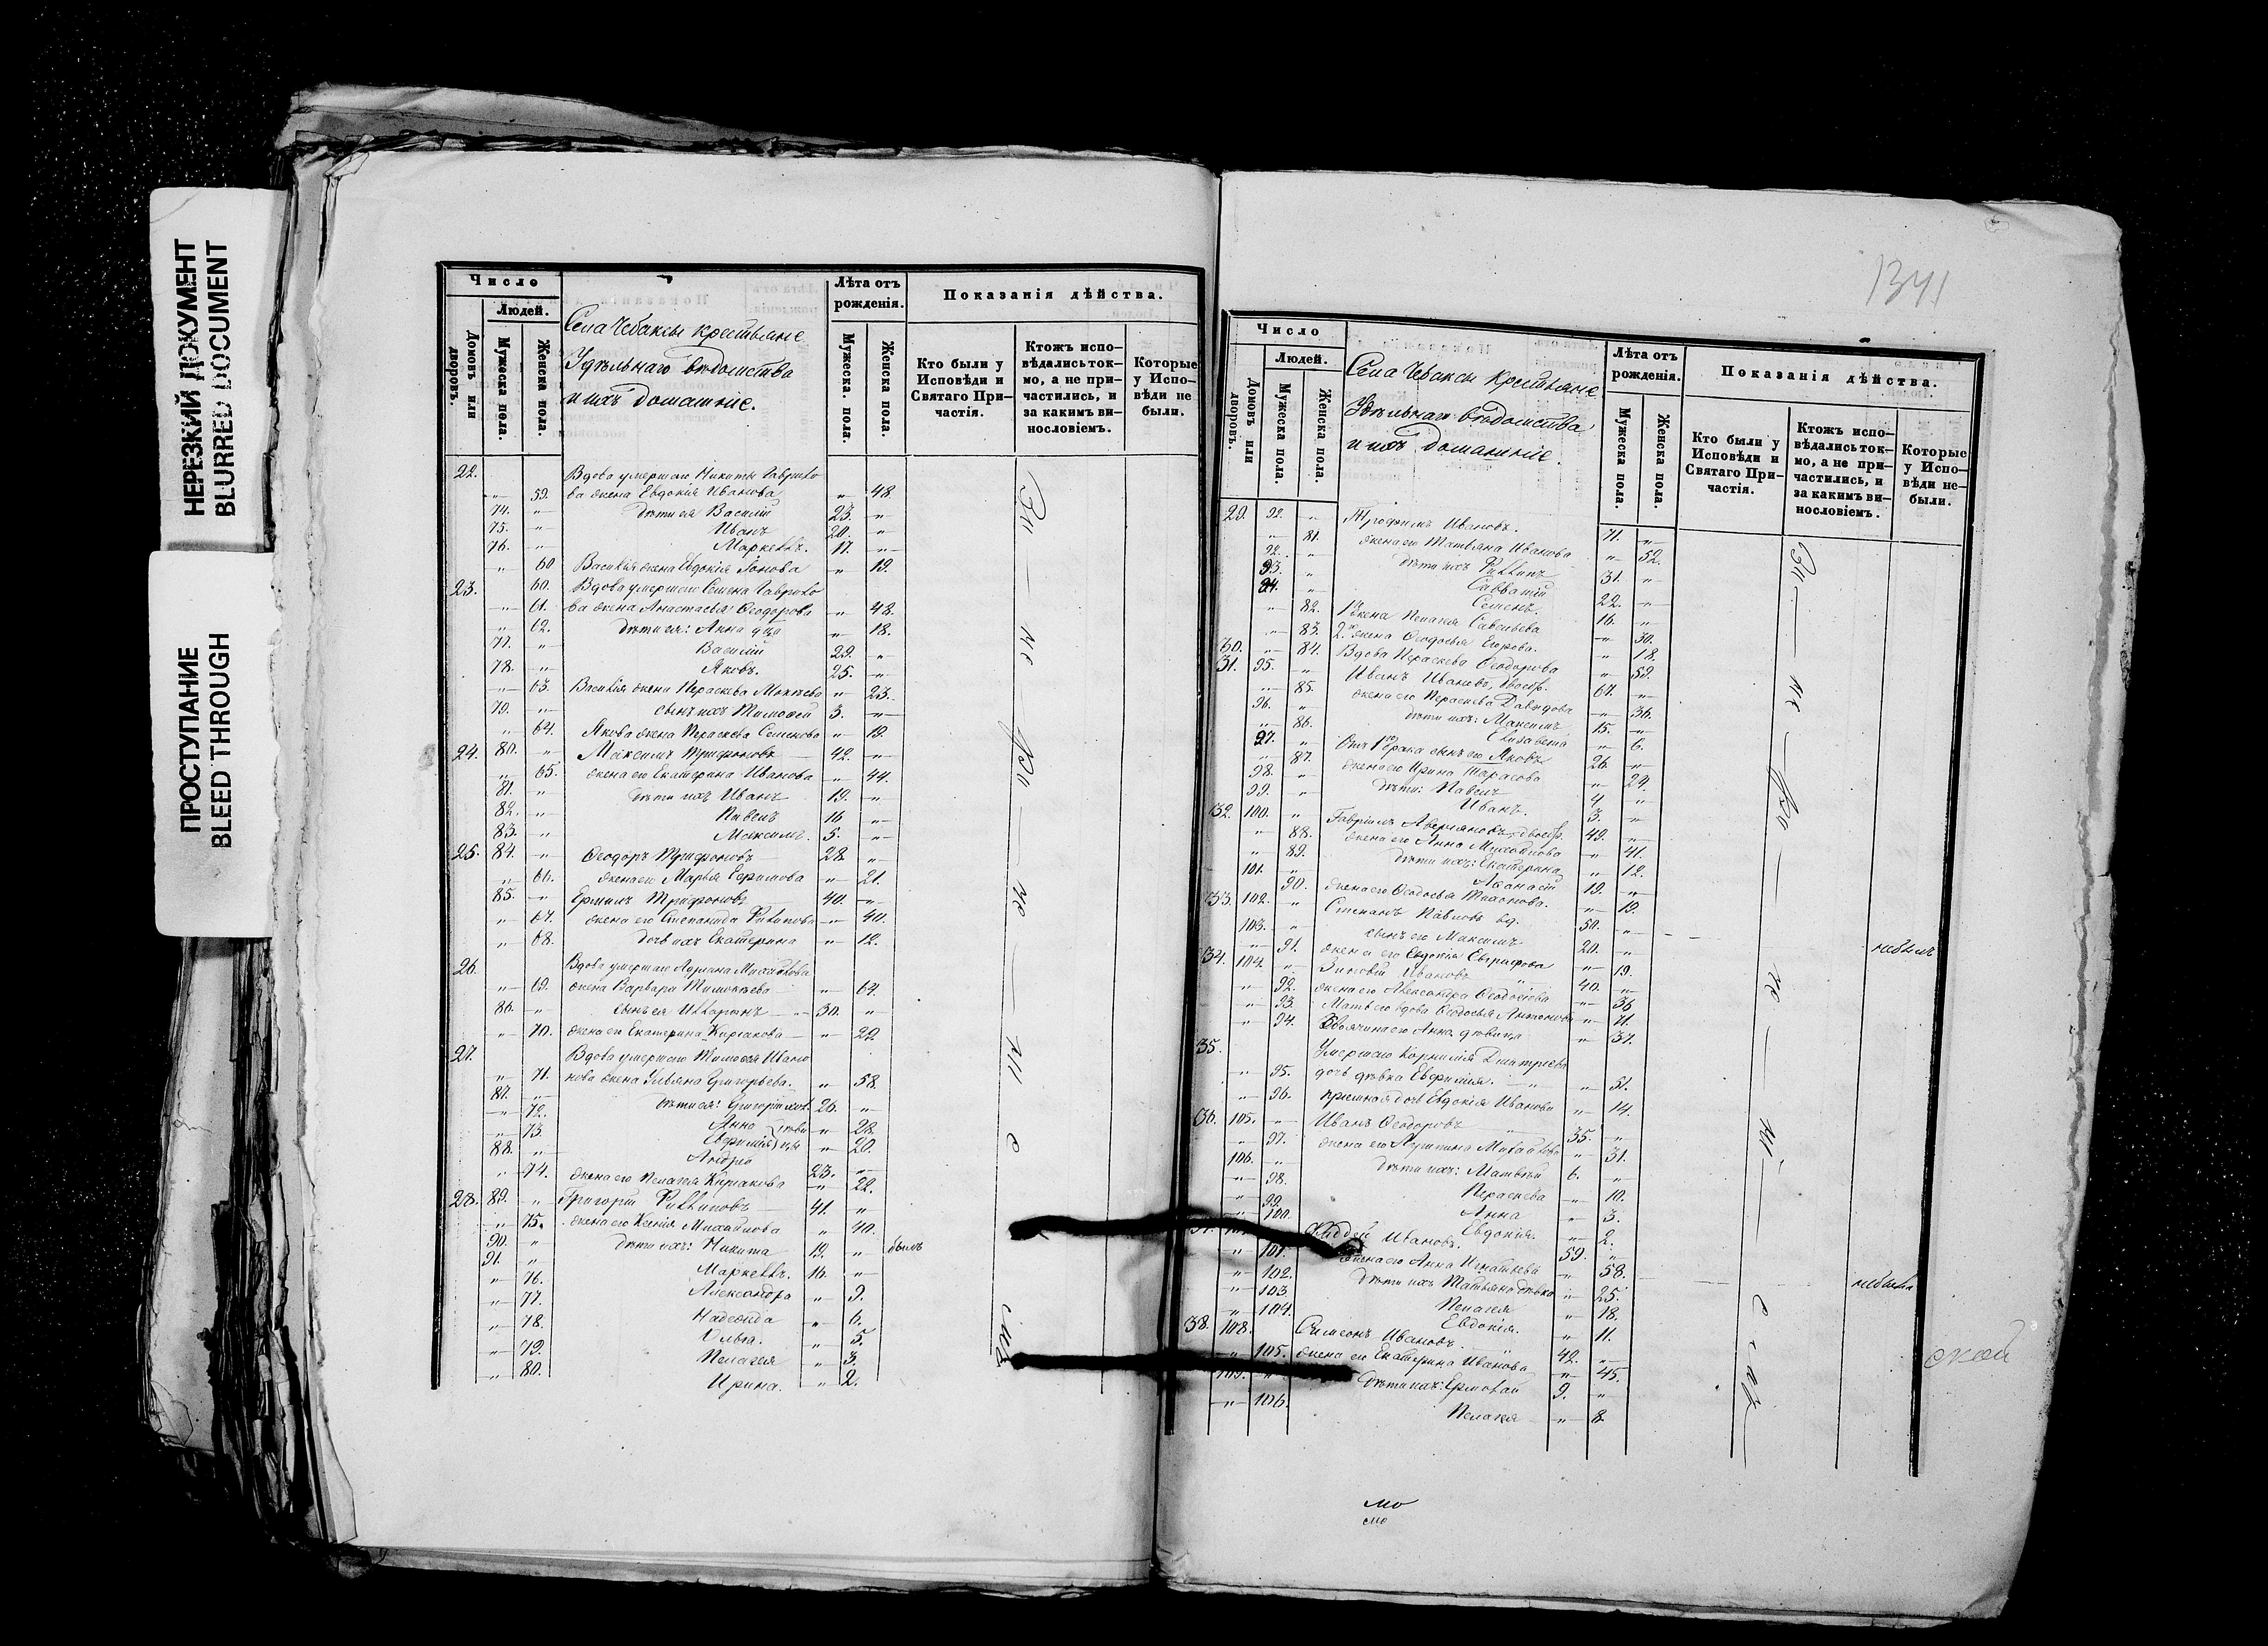 НЕРЕЗКИЙ ДОКУМЕНТ
BLURRED DOCUMENT
ПРОСТУПАНИЕ
BLEED THROUGH
Число
Людей.
Домовъ или дворовъ.
Мужеска пола.
Женска пола.
Села Чебаксы крестьяне
Удѣльнаго вѣдомства
и ихъ домашніе.
Лѣта отъ рожденія.
Мужеска пола.
Женска пола.
Показанія дѣйства.
Кто были у Исповѣди и Святаго Причастія.
Ктожъ исповѣдались токмо, а не причастились, и за какимъ винословіемъ.
Которые у Исповѣди не были.
22. Вдова умершаго Никиты Гаврило
„ 59. ва жена Евдокія Иванова „ 48.
74. „ дѣти ея Василій 23. „
75. „ Иванъ 20. „
76. „ Маркеллъ. 17. „
„ 60 Василія жена Евдокія „ 19.
23. 60. Вдова умершаго Семена Гаврило
„ 61. ва жена Анастасья Ѳеодорова „ 48.
„ 62. дѣти ея: Анна „ 18.
77. „ Василій 29. „
78. „ Яковъ. 25. „
„ 63. Василія жена Параскева „ 23.
79. „ сынъ ихъ Тимоѳей 3. „
„ 64. Якова жена Параскева Семенова „ 19.
24. 80. „ Максимъ Трифоновъ 42. „
„ 65. жена его Екатерина Иванова „ 44.
81. „ дѣти ихъ Иванъ 19. „
82. „ Павелъ 16 „
83. „ Максимъ. 5. „
25. 84. „ Ѳеодоръ Трифоновъ 28. „
„ 66. жена его Марья Ефримова „ 21.
85. „ Ермилъ Трифоновъ 40. „
„ 67. жена его Степанида Филипова „ 40.
„ 68. дочь ихъ Екатерина „ 12.
26. Вдова умершаго Адриана Михайлова
„ 69. жена Варвара Тимоѳеева „ 64.
86. „ сынъ ея Илларіонъ 30. „
„ 70. жена его Екатерина Киріакова „ 29.
27. Вдова умершаго Тимоѳея Ивано
„ 71. нова жена Ульяна Григорьева. „ 58.
87. „ дѣти ея: Григорій 26. „
„ 72. Анна „ 28.
„ 73. Евфимія „ 20.
88. „ Андрей 23. „
„ 74. жена его Пелагея Киріакова „ 22.
28. 89. „ Григорій Филиповъ 41. „
„ 75. жена его Ксенія Михайлова „ 40.
90. „ дѣти ихъ: Никита 19. „ былъ
91. „ Маркеллъ. 16. „
„ 76. Александра „ 9.
„ 77. Надежда „ 6.
„ 78. Ольга. „ 5.
„ 79. Пелагея „ 3.
„ 80. Ирина. „ 2.
1341
Число
Людей.
Домовъ или дворовъ.
Мужеска пола.
Женска пола.
Села Чебаксы крестьяне
Удѣльнаго вѣдомства
и ихъ домашніе.
Лѣта отъ рожденія.
Мужеска пола.
Женска пола.
Показанія дѣйства.
Кто были у Исповѣди и Святаго Причастія.
Ктожъ исповѣдались токмо, а не причастились, и за какимъ винословіемъ.
Которые у Исповѣди не были.
29. 92. „ Трофимъ Ивановъ. 71. „
„ 81. жена его Татьяна Иванова „ 52.
92. „ дѣти ихъ Филипъ 31. „
93. „ Савватій 22. „
94. „ Семенъ. 16. „
„ 82. 1. жена Пелагея Савельева „ 30.
„ 83. 2. жена Ѳеодосья Егорова. „ 18.
30. „ 84. Вдова Параскева Ѳеодорова „ 59.
31. 95. „ Иванъ Ивановъ, двоебр. 67. „
„ 85. жена его Параскева Давыдова „ 36.
96. „ дѣти ихъ: Максимъ 15. „
„ 86. Елизавета „ 6.
97. „ Отъ 1го брака сынъ его Яковъ 26. „
„ 87. жена его Ирина Тарасова „ 24.
98. „ дѣти: Павелъ 4 „
99. „ Иванъ. 3. „
32. 100. „ Гавріилъ Аверьяновъ, двоебр. 49. „
„ 88. жена его Анна Михайлова „ 41.
„ 89. дѣти ихъ: Екатерина „ 12.
101. „ Аѳанасій 19. „
„ 90. жена его Ѳеодосья Тихонова. „ 19.
33. 102. „ Степанъ Павловъ вд. 50. „
103. „ сынъ его Максимъ 20. „ небылъ
„ 91. жена его Евдокія „ 19.
34. 104. „ Зиновій Ивановъ 40. „
„ 92. жена его Александра Ѳеодосіева „ 36
„ 93. Мать его вдова Ѳеодосья Антонова „ 71.
„ 94. Анна дѣвица „ 31.
35. Умершаго Корнилія Дмитріева
„ 95. дочь дѣвка Евфимія. „ 51.
„ 96. пріемная дочь Евдокія Иванова „ 14.
36. 105. „ Иванъ Ѳеодоровъ 35. „
„ 97. жена его Михайлова „ 31.
106. „ дѣти ихъ: Матвѣй 6. „
„ 98. Параскева „ 10.
„ 99. Анна „ 3.
„ 100. Евдокія. „ 2.
Фаддей Ивановъ. 59. „
„ 101. жена его Анна Игнатьева „ 58.
„ 102. дѣти ихъ Татьяна дѣвка „ 25. небыла
„ 103 Пелагея „ 18.
„ 104. Евдокія. „ 11.
38. 108. Симеонъ Ивановъ. 42. „
„ 105. жена его Екатерина Иванова „ 45.
109. „ дѣти ихъ: Ермолай 9. „
„ 106. Пелагея „ 8.
ской
мо
мо